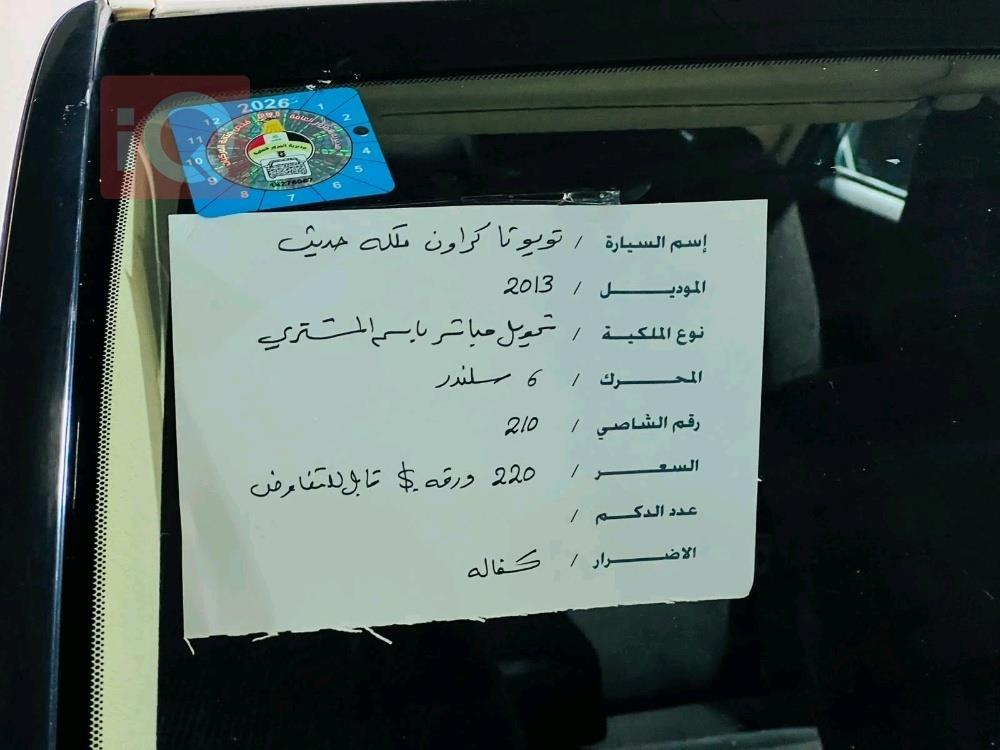 iQ
2026
12 1 2 4 5 6 7 8 9 10 11
مديرية المرور العامة
إسم السيارة / تويوتا كراون ملكه حديث
الموديل / 2013
نوع الملكية / تحويل مباشر باسم المشتري
المحرك / 6 سلندر
رقم الشاصي / 210
السعر / 220 ورقه $ قابل للتفاوض
عدد الدكم /
الاضرار / كفاله